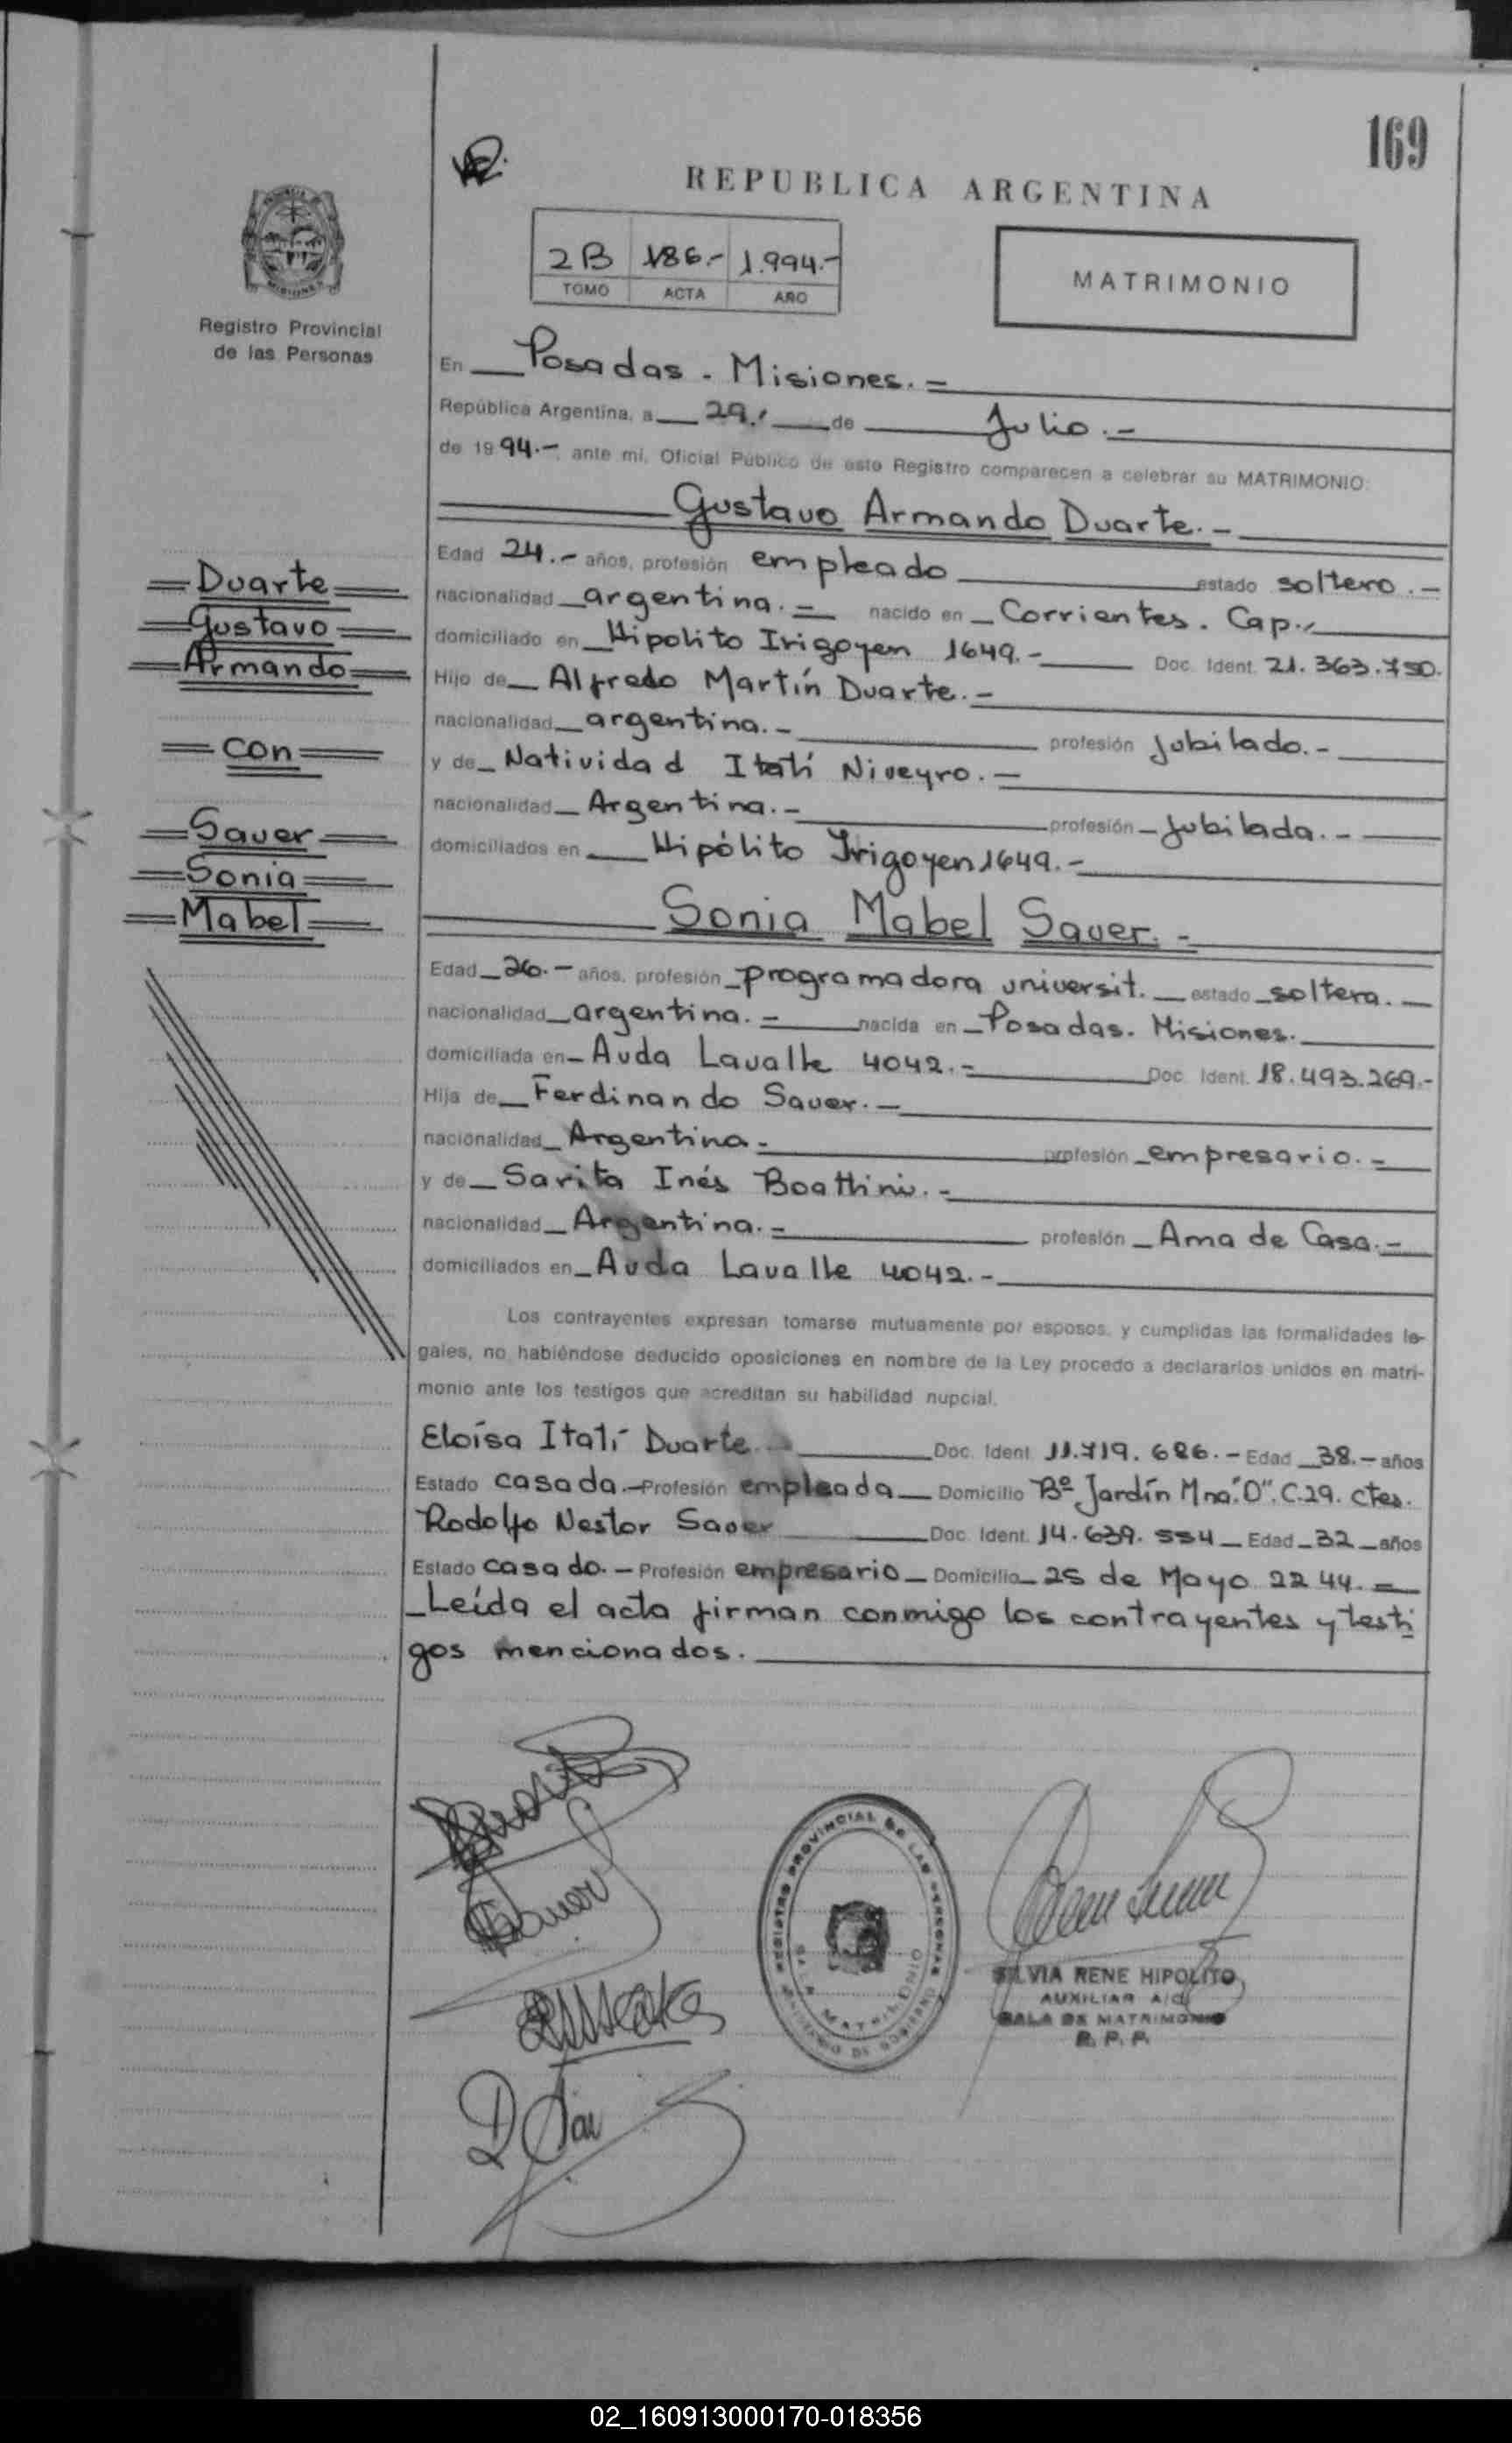 169
REPUBLICA ARGENTINA
2B 186.- 1.994.-
TOMO ACTA AÑO
MATRIMONIO
Registro Provincial
de las Personas
En Posadas - Misiones.=
República Argentina, a 29.- de Julio.-
de 1994.-, ante mi, Oficial Público de este Registro comparecen a celebrar su MATRIMONIO:
Gustavo Armando Duarte.-
Edad 24.- años, profesión empleado estado soltero.-
nacionalidad argentina.= nacido en Corrientes. Cap.,
domiciliado en Hipolito Irigoyen 1649.- Doc. Ident. 21.363.750.
Hijo de Alfredo Martín Duarte.-
nacionalidad argentina.- profesión Jubilado.-
y de Natividad Itatí Niveyro.-
nacionalidad Argentina.- profesión Jubilada.-
domiciliados en Hipólito Irigoyen 1649.-
Duarte
Gustavo
Armando
con
Sauer
Sonia
Mabel
Sonia Mabel Sauer.-
Edad 26.- años, profesión programadora universit. estado soltera.-
nacionalidad argentina.- nacida en Posadas. Misiones.
domiciliada en Avda Lavalle 4042.- Doc. Ident. 18.493.269.-
Hija de Ferdinando Sauer.-
nacionalidad Argentina- profesión empresario.-
y de Sarita Inés Boattini.-
nacionalidad Argentina.- profesión Ama de Casa.-
domiciliados en Avda Lavalle 4042.-
Los contrayentes expresan tomarse mutuamente por esposos, y cumplidas las formalidades le-
gales, no habiéndose deducido oposiciones en nombre de la Ley procedo a declararlos unidos en matri-
monio ante los testigos que acreditan su habilidad nupcial.
Eloísa Itatí Duarte.- Doc. Ident. 11.719.686.- Edad 38.- años
Estado casada.- Profesión empleada Domicilio Bº Jardín Mna."D". C.29. ctes.
Rodolfo Nestor Sauer Doc. Ident. 14.639.554 Edad 32 años
Estado casado.- Profesión empresario Domicilio 25 de Mayo 2244.=
Leída el acta firman conmigo los contrayentes y testi
gos mencionados.
REGISTRO PROVINCIAL DE LAS PERSONAS
SALA MATRIMONIO
MINISTERIO DE GOBIERNO
SILVIA RENE HIPOLITO
AUXILIAR A/C
SALA DE MATRIMONIO
R. P. P.
02_160913000170-018356